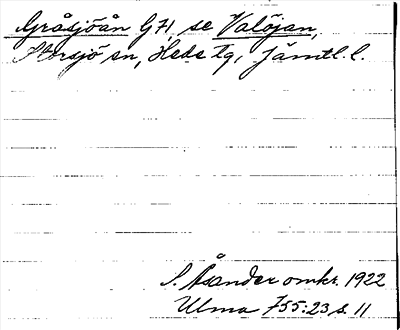 Gråsjöån G 71, se Valöjan,
Storsjö sn, Heds tg, Jämtl. l.
S. Åsander omkr. 1922
Ulma 755:23 s. 11